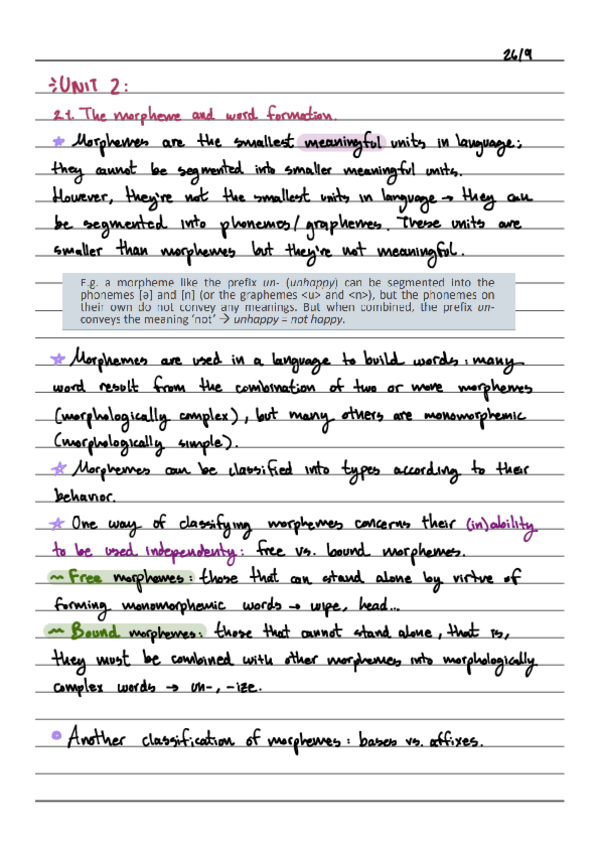 26/9
UNIT 2:
2.1. The morpheme and word formation.
☆ Morphemes are the smallest meaningful units in language;
they cannot be segmented into smaller meaningful units.
However, they're not the smallest units in language → they can
be segmented into phonemes/graphemes. These units are
smaller than morphemes but they're not meaningful.
E.g. a morpheme like the prefix un- (unhappy) can be segmented into the
phonemes [a] and [n] (or the graphemes <u> and <n>), but the phonemes on
their own do not convey any meanings. But when combined, the prefix un-
conveys the meaning 'not' → unhappy = not happy.
☆ Morphemes are used in a language to build words: many
word result from the combination of two or more morphemes
(morphologically complex), but many others are monomorphemic
(morphologically simple).
☆ Morphemes can be classified into types according to their
behavior.
☆ One way of classifying morphemes concerns their (in)ability
to be used independenty: free vs. bound morphemes.
~ Free morphemes: those that can stand alone by virtue of
forming monomorphemic words → wipe, head...
~ Bound morphemes: those that cannot stand alone, that is,
they must be combined with other morphemes into morphologically
complex words → un-, -ize.
• Another classification of morphemes: bases vs. affixes.